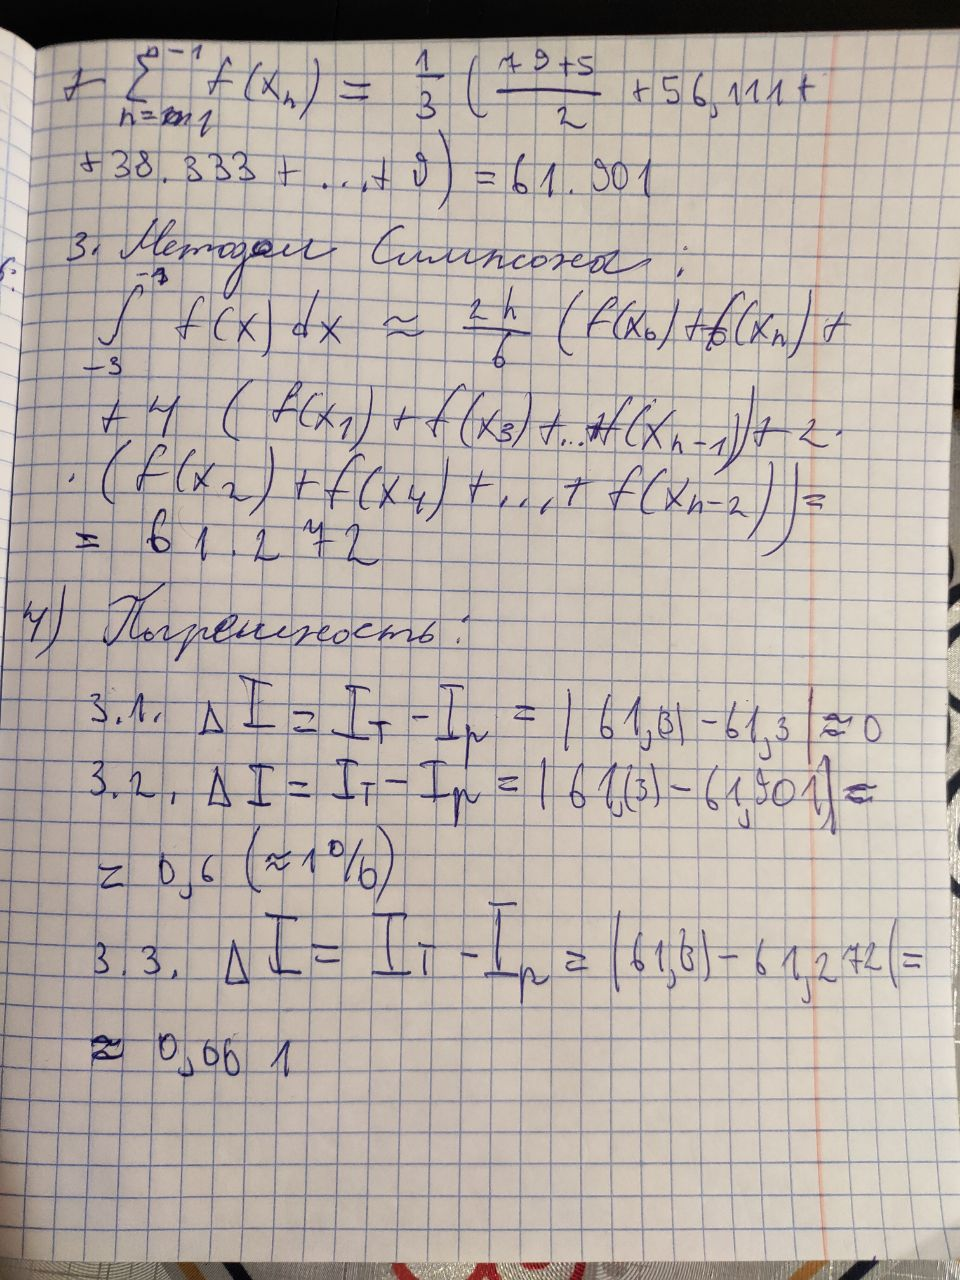 + Σ n=1 n-1 f(xₙ) = 1/3 ( (79+5)/2 + 56,111 +
+ 38.333 + ... + 9) = 61.901
3. Методом Симпсона:
∫ -3 f(x) dx ≈ 2h/6 (f(x₀) + f(xₙ) +
+ 4 (f(x₁) + f(x₃) + ... + f(xₙ₋₁)) + 2 ·
· (f(x₂) + f(x₄) + ... + f(xₙ₋₂))) =
= 61.272
4) Погрешность:
3.1. Δ I = Iт - Iр = | 61,(3) - 61,3 | ≈ 0
3.2. Δ I = Iт - Iр = | 61,(3) - 61,901 | =
= 0,6 (≈ 1%)
3.3. Δ I = Iт - Iр = | 61,(3) - 61,272 | =
≈ 0,061